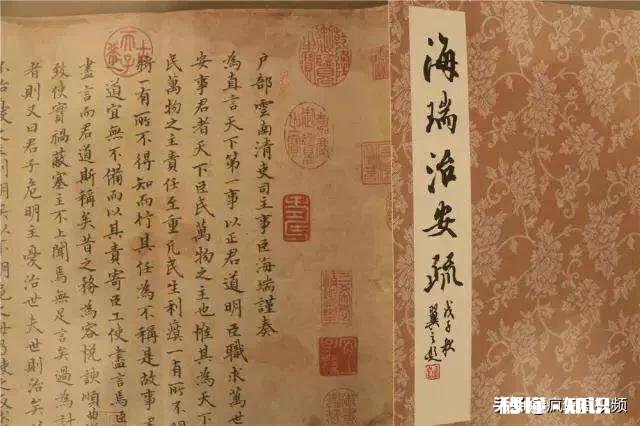 海瑞治安疏
戊子秋
戶部雲南清吏司主事臣海瑞謹奏
為直言天下第一事以正君道明臣職求萬世
安事君者天下臣民萬物之主也惟其為天下
民萬物之主責任至重凡民生利瘼一有所不
將一有所不得知而行其任為不稱是故事君
道宜無不備而以其責寄臣工使盡言焉臣
盡言而君道斯稱矣昔之務為容悅諛順曲
致使實禍蔽塞主不上聞焉無足言矣過為計
者則又曰君子危明主憂治世夫世則治矣以
不治憂之主則明矣以不明危之毋乃使之反求
知识
视频